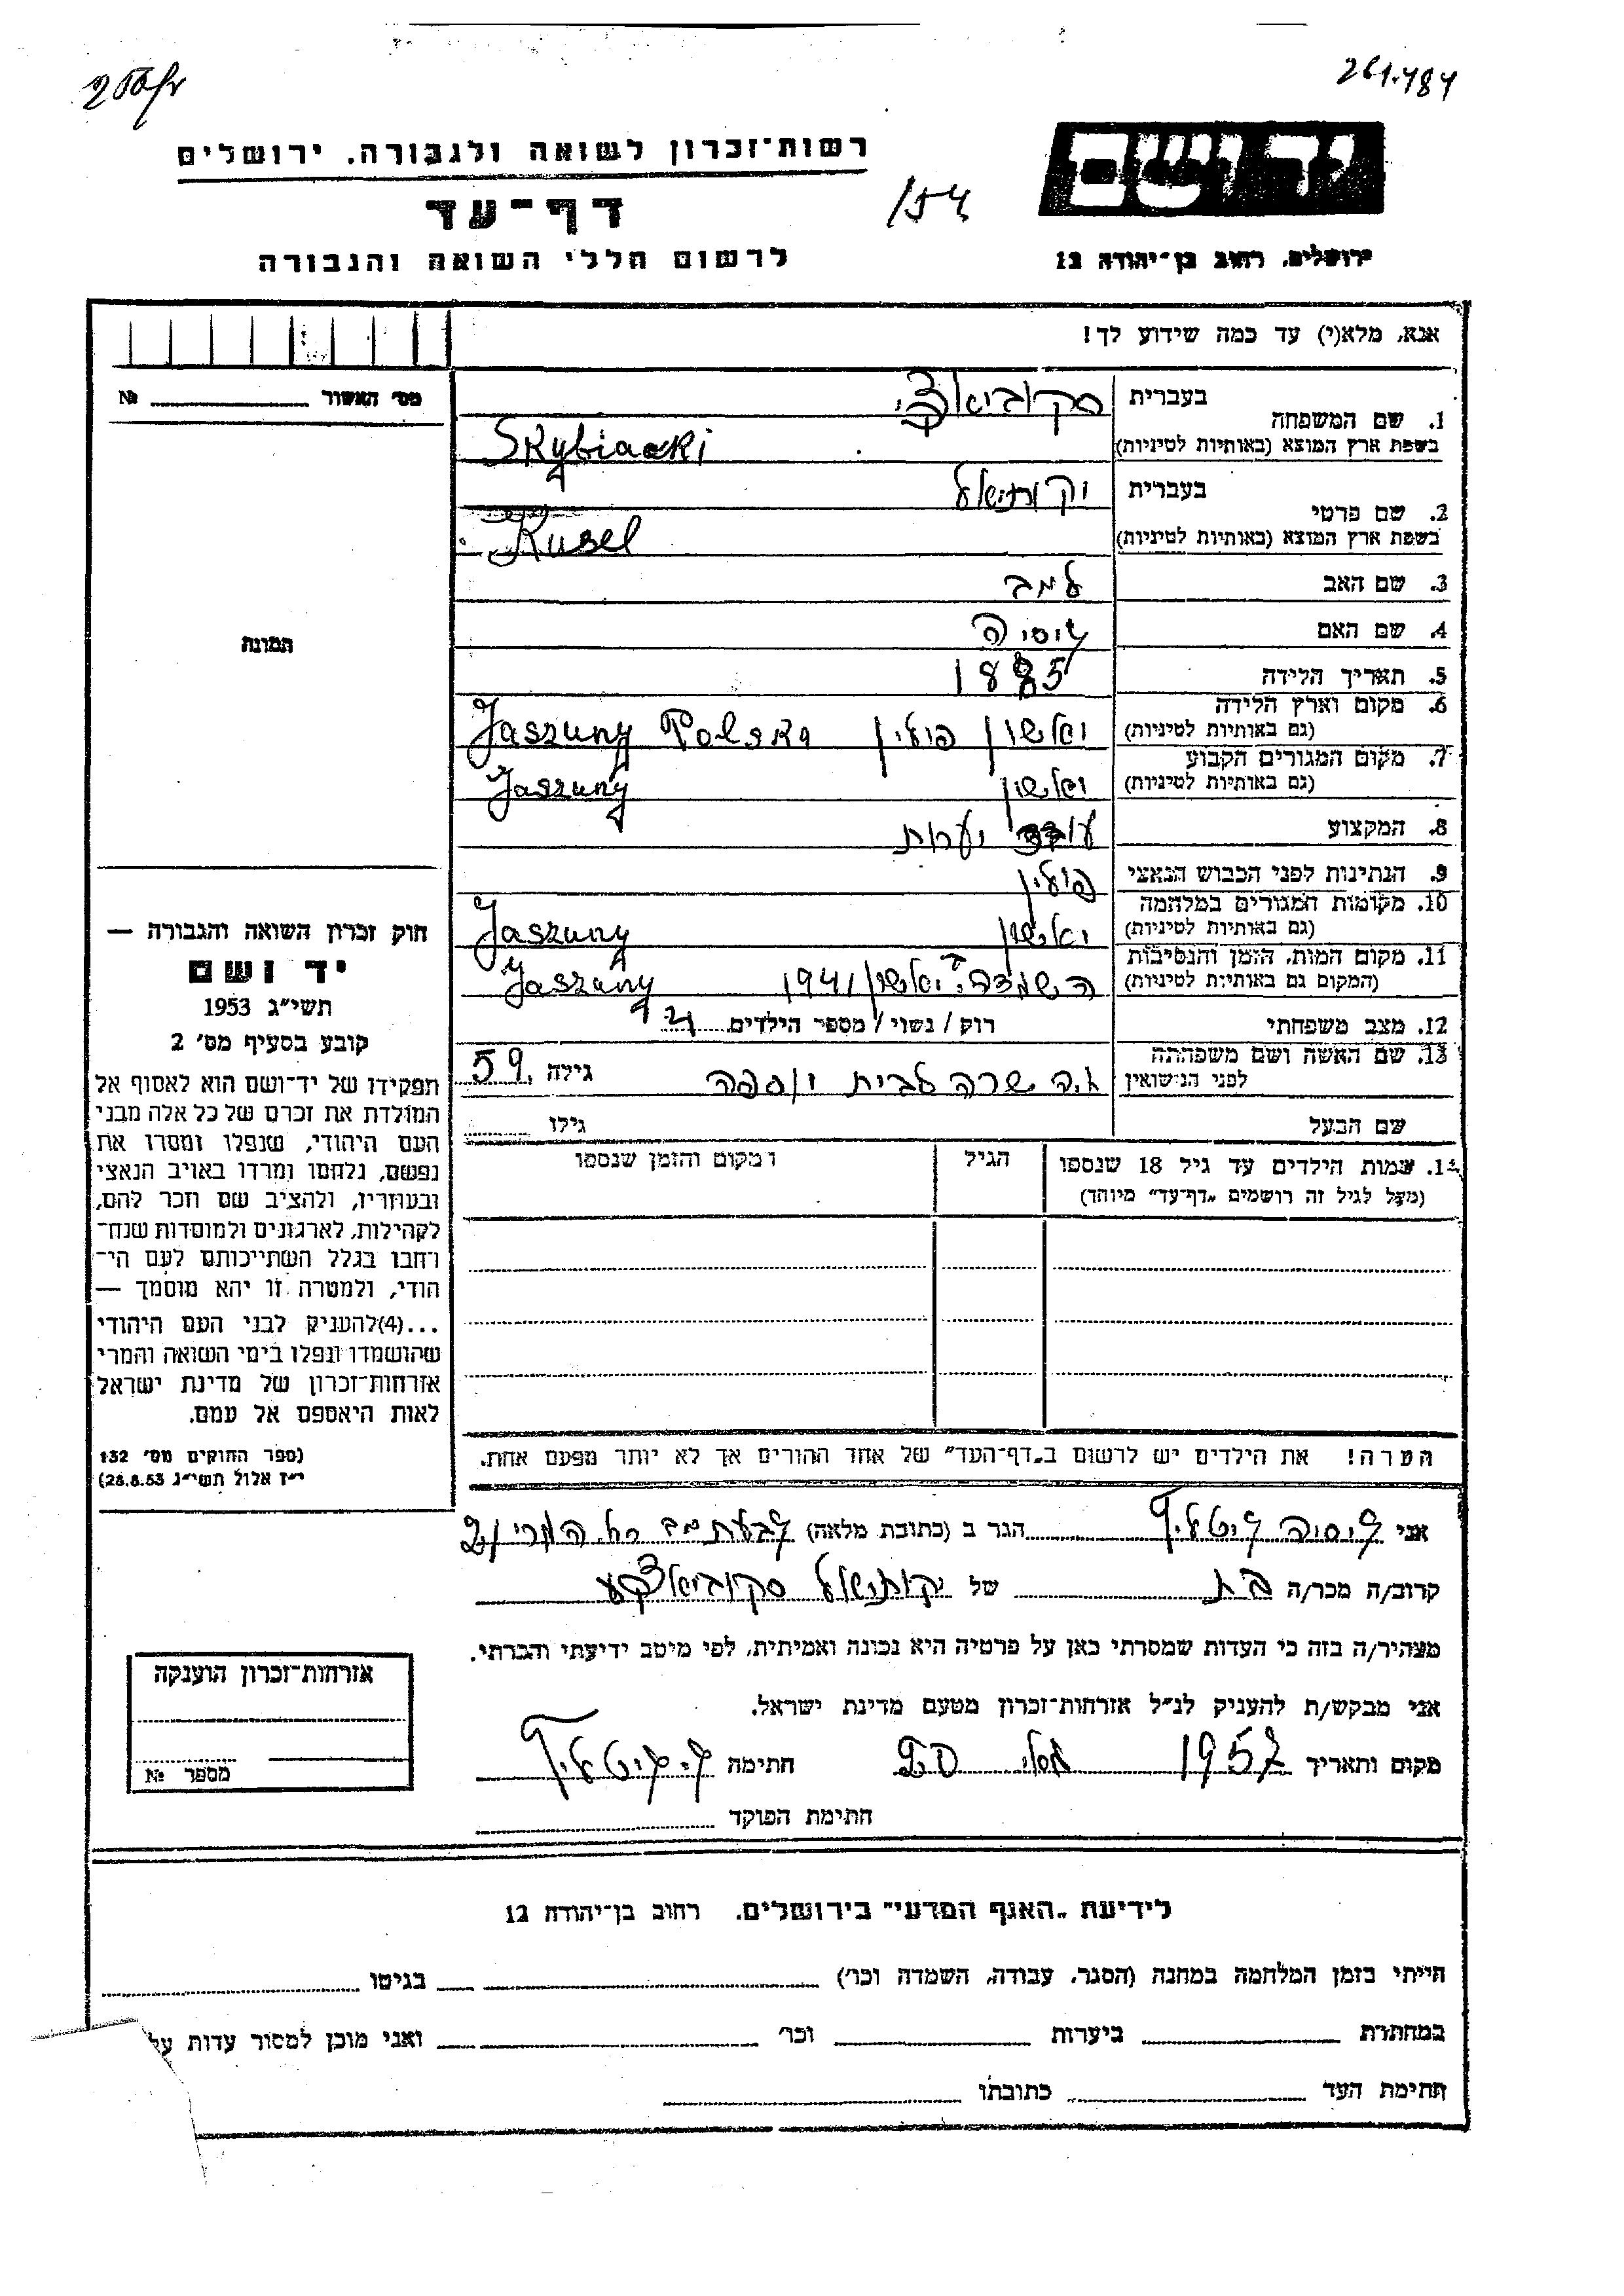 261.484
רשות־זכרון לשואה ולגבורה. ירושלים
דף־עד
לרשום חללי השואה והגבורה
154
יד ושם
ירושלים, רחוב בן־יהודה 12
אנא, מלא(י) עד כמה שידוע לך!
מס׳ האשור № ____
1. שם המשפחה בעברית
סקוביאצקי
בשפת ארץ המוצא (באותיות לטיניות) Skybiacki
2. שם פרטי בעברית יקותיאל
בשפת ארץ המוצא (באותיות לטיניות) Kusel
3. שם האב
4. שם האם
5. תאריך הלידה 1885
6. מקום וארץ הלידה
(גם באותיות לטיניות) יאשון פולין Jaszuny Polska
7. מקום המגורים הקבוע
(גם באותיות לטיניות) יאשון Jaszuny
8. המקצוע עובד יערות
9. הנתינות לפני הכבוש הנאצי פולין
10. מקומות המגורים במלחמה
(גם באותיות לטיניות) יאשון Jaszuny
11. מקום המות, הזמן והנסיבות
(המקום גם באותיות לטיניות) יאשון 1941 Jaszuny
12. מצב משפחתי רוק / נשוי / מספר הילדים
13. שם האשה ושם משפחתה
לפני הנישואין חיה שרה לבית גילה 59
שם הבעל גילו
14. שמות הילדים עד גיל 18 שנספו הגיל מקום והזמן שנספו
(מעל לגיל זה רושמים „דף־עד״ מיוחד)
הערה! את הילדים יש לרשום ב„דף־העד״ של אחד ההורים אך לא יותר מפעם אחת.
תמונה
חוק זכרון השואה והגבורה —
יד ושם
תשי״ג 1953
קובע בסעיף מס׳ 2
תפקידו של יד־ושם הוא לאסוף אל
המולדת את זכרם של כל אלה מבני
העם היהודי, שנפלו ומסרו את
נפשם, נלחמו ומרדו באויב הנאצי
ובעוזריו, ולהציב שם וזכר להם,
לקהילות, לארגונים ולמוסדות שנח־
רבו בגלל השתייכותם לעם הי־
הודי, ולמטרה זו יהא מוסמך —
...(4)להעניק לבני העם היהודי
שהושמדו ונפלו בימי השואה והמרי
אזרחות־זכרון של מדינת ישראל
לאות היאספם אל עמם.
(ספר החוקים מס׳ 132
י״ז אלול תשי״ג 28.8.53)
אני הגר ב (כתובת מלאה)
קרוב/ה מכר/ה בת של יקותיאל
מצהיר/ה בזה כי העדות שמסרתי כאן על פרטיה היא נכונה ואמיתית, לפי מיטב ידיעתי והכרתי.
אני מבקש/ת להעניק לנ״ל אזרחות־זכרון מטעם מדינת ישראל.
מקום ותאריך 1957 חתימה
חתימת הפוקד
אזרחות־זכרון הוענקה
מספר №
לידיעת „האגף המדעי״ בירושלים. רחוב בן־יהודה 12
הייתי בזמן המלחמה במחנה (הסגר, עבודה, השמדה וכו׳) בגיטו
במחתרת ביערות וכו׳ ואני מוכן למסור עדות על
חתימת העד כתובתו